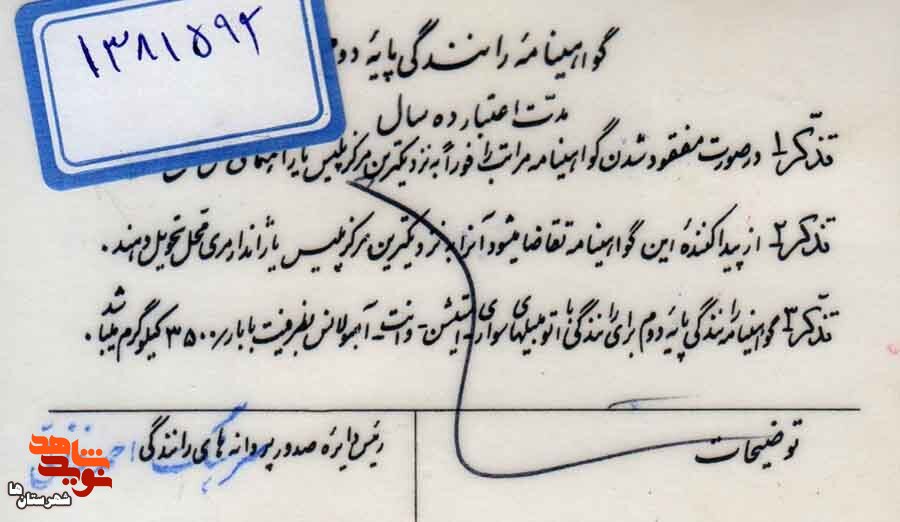 ۱۳۸۱۵۹۲
گواهینامهٔ رانندگی پایهٔ دوم
مدّت اعتبار ده سال
تذکّر۱- در صورت مفقود شدن گواهینامه مراتب را فوراً به نزدیکترین مرکز پلیس یا راهنمائی
تذکّر۲- از پیدا کنندهٔ این گواهینامه تقاضا میشود آنرا به نزدیکترین مرکز پلیس یا ژاندارمری محل تحویل دهند.
تذکّر۳- گواهینامه رانندگی پایه دوم برای رانندگی با اتومبیلهای سواری استیشن - وانت - آمبولانس بظرفیت با بار ۳۵۰۰ کیلوگرم میباشد.
توضیحات
رئیس دایره صدور پروانه های رانندگی
سرهنگ
نوید شاهد
شهرستان‌ها